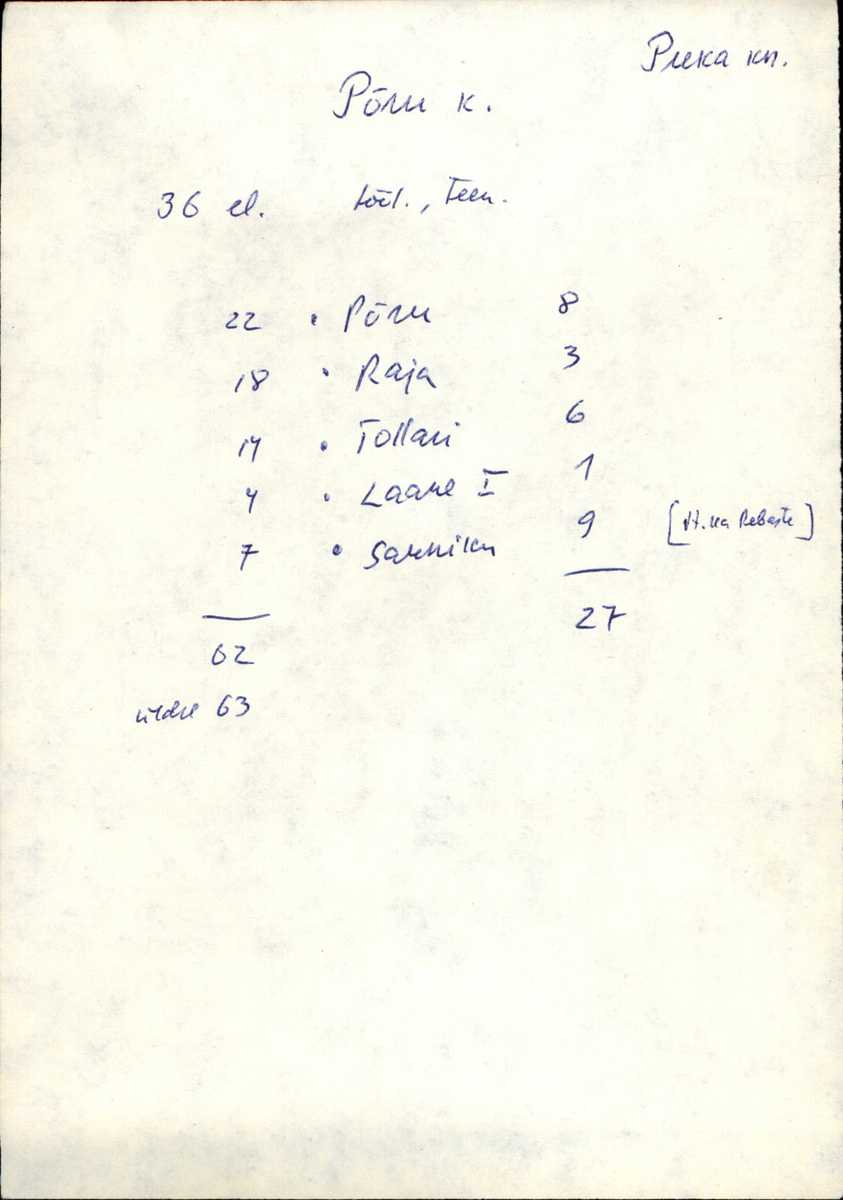 Puka kn.
Põru k.
36 el. tööl., teen.
22 • Põru 8
18 • Raja 3
• Tollari 6
4 • Laane I 1
7 • Sanniku 9 [vt. ka Rebaste]
27
62
üldse 63